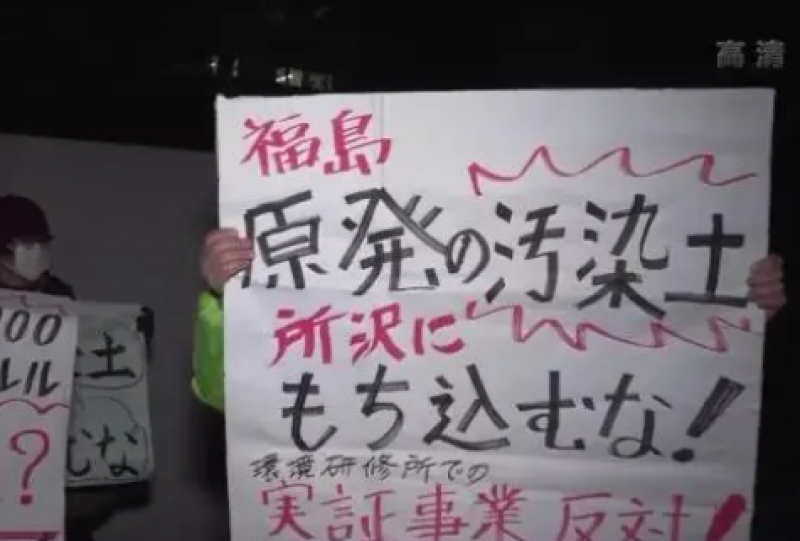 高清
福島
原発の汚染土
所沢に
もち込むな!
環境研修所での
実証事業 反対!
00
レル
?
土
むな